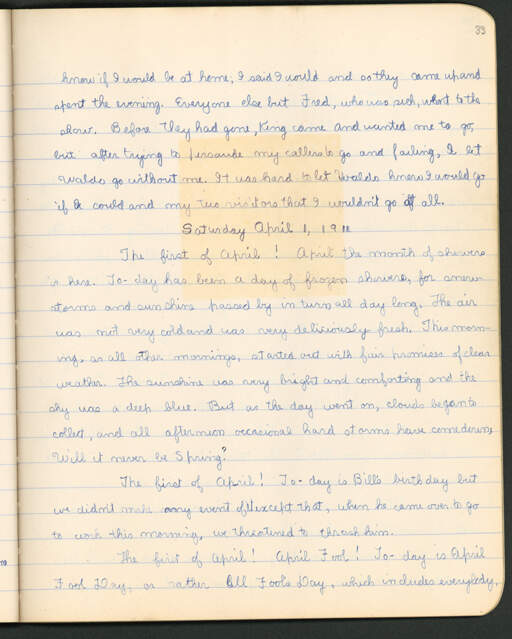 33
know if I would be at home; I said I would and so they came up and
spent the evening. Everyone else but Fred, who was sick, went to the
show. Before they had gone, King came and wanted me to go,
but after trying to persuade my callers to go and failing, I let
Waldo go without me. It was hard to let Waldo know I would go
if I could and my two visitors that I wouldn't go at all.
Saturday April 1, 1911
The first of April! April the month of showers
is here. To-day has been a day of frozen showers, for snow
storms and sunshine passed by in turn all day long. The air
was not very cold and was very deliciously fresh. This morn-
ing, as all other mornings, started out with fair promises of clear
weather. The sunshine was very bright and comforting and the
sky was a deep blue. But as the day went on, clouds began to
collect, and all afternoon occasional hard storms have come down.
Will it never be Spring?
The first of April! To-day is Bill's birthday but
we didn't make any event of it except that, when he came over to go
to work this morning, we threatened to thrash him.
The first of April! April Fool! To-day is April
Fool Day, or rather All Fools Day, which includes everybody.